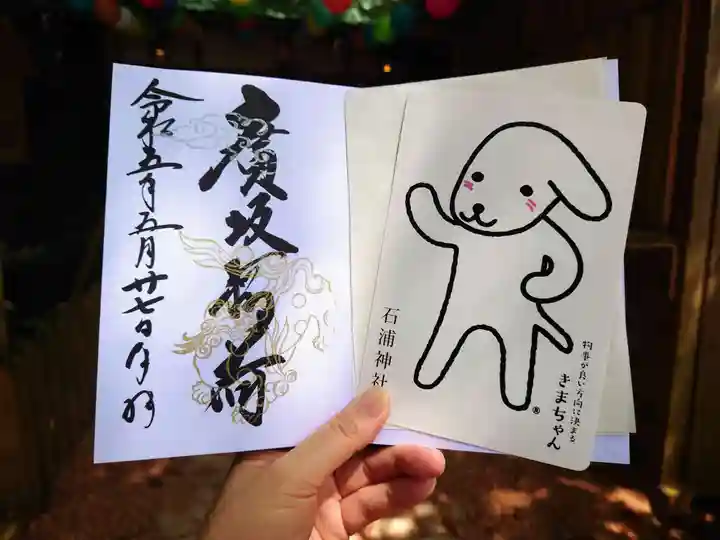 廣坂稲荷
令和五年五月廿七日奉拝
石浦神社
物事が良い方向に決まる
きまちゃん
®